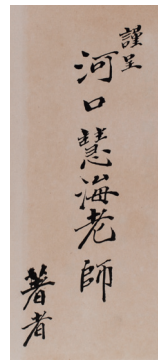 謹呈
河口慧海老師
著者